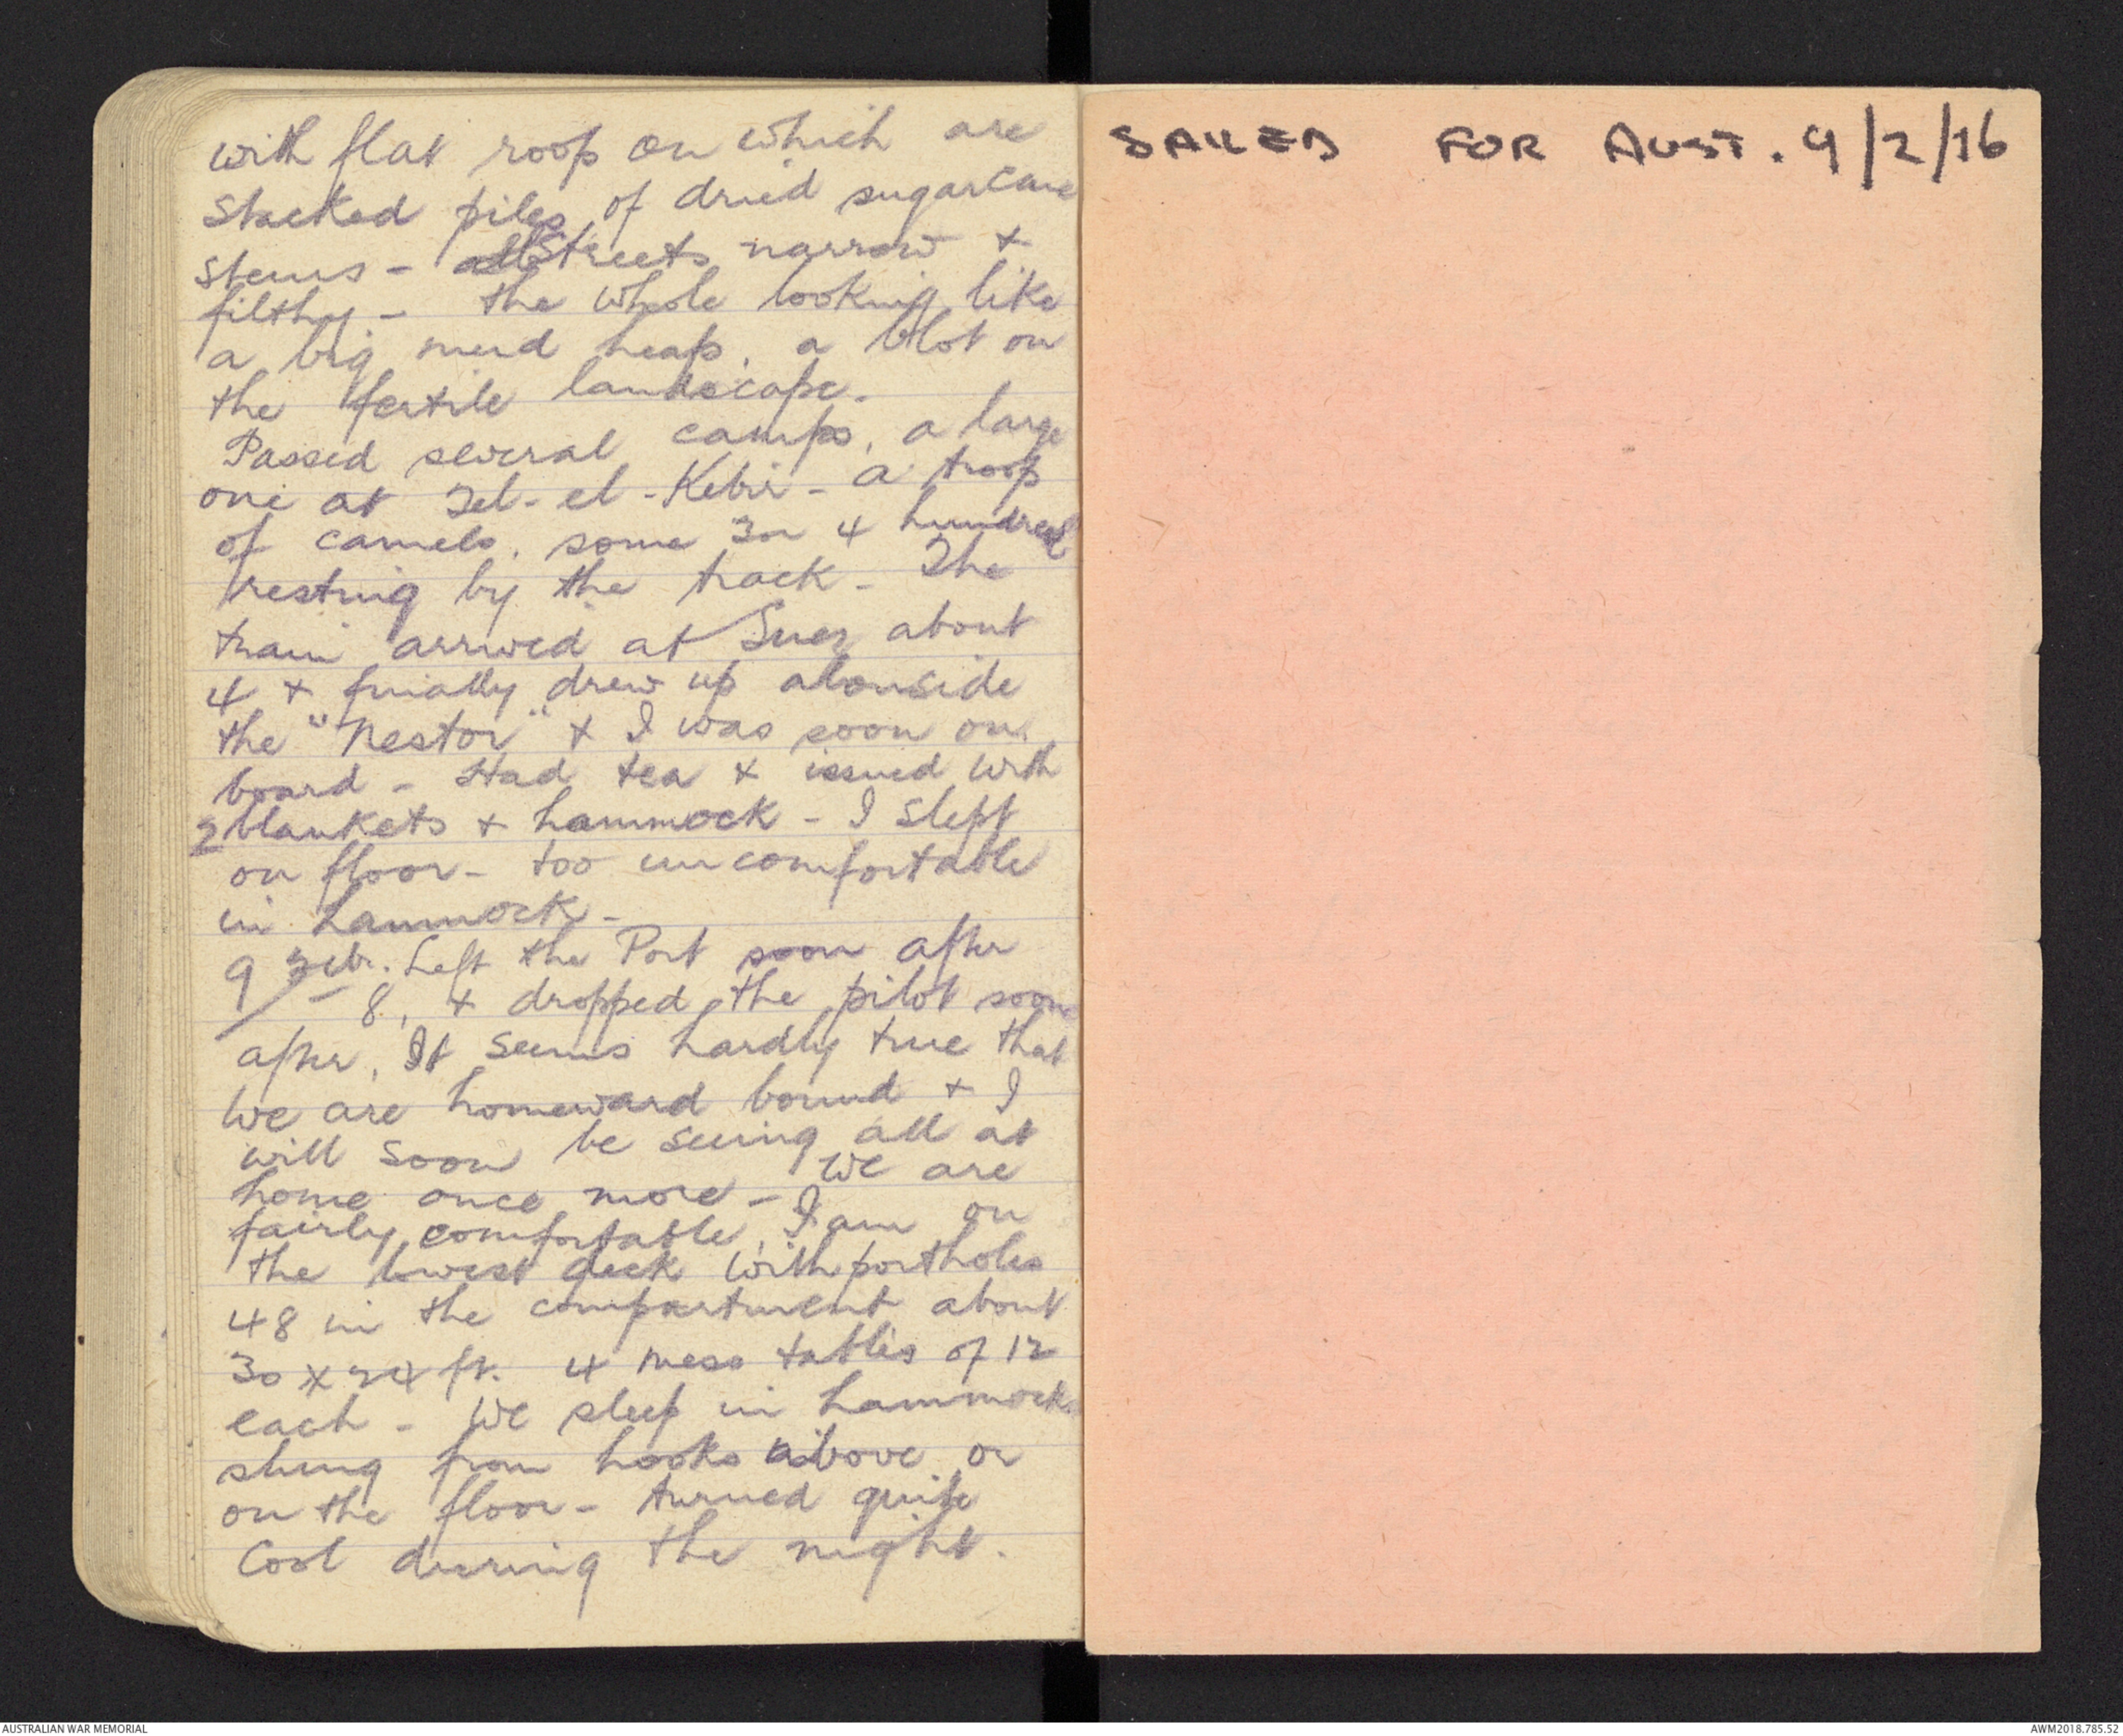 with flat roofs on which are
stacked piles of dried sugarcane
stems - all Streets narrow +
filthy - the whole looking like
a big mud heap, a blot on
the fertile landscape.
Passed several camps, a large
one at Tel-el-Kebir - a troop
of camels, some 3 or 4 hundred
resting by the track - The
train arrived at Suez about
4 + finally drew up alonside
the "Nestor" + I was soon on
board - Had tea + issued with
2 blankets + hammock - I slept
on floor - too uncomfortable
in hammock -
9 Feb. Left the Port soon after
8, + dropped the pilot soon
after, It seems hardly true that
we are homeward bound + I
will soon be seeing all at
home once more - We are
fairly comfortable, I am on
the lowest deck with portholes
48 in the compartment about
30 x 24 ft. 4 mess tables of 12
each - We sleep in hammocks
slung from hooks above or
on the floor - turned quite
cool during the night.
SAILED FOR AUST. 9/2/16
AUSTRALIAN WAR MEMORIAL
AWM2018.785.52